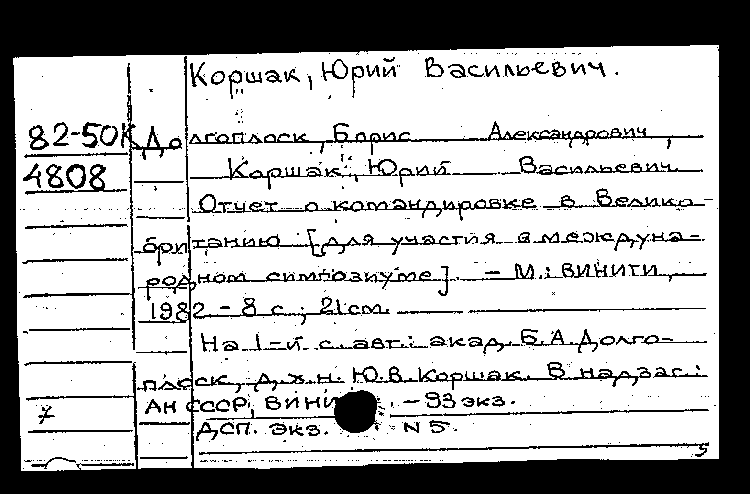 Коршак, Юрий Васильевич.
82-50К Долгоплоск, Борис Александрович,
4808 Коршак, Юрий Васильевич
Отчет о командировке в Велико-
британию [для участия в междуна-
родном симпозиуме]. - М.: ВИНИТИ,
1982 - 8 с.; 21 см.
На 1-й с. авт.: акад. Б.А. Долго-
плоск, д.х.н. Ю.В. Коршак. В надзаг.:
АН СССР, ВИНИ - 93 экз.
ДСП. экз. N 5.
5